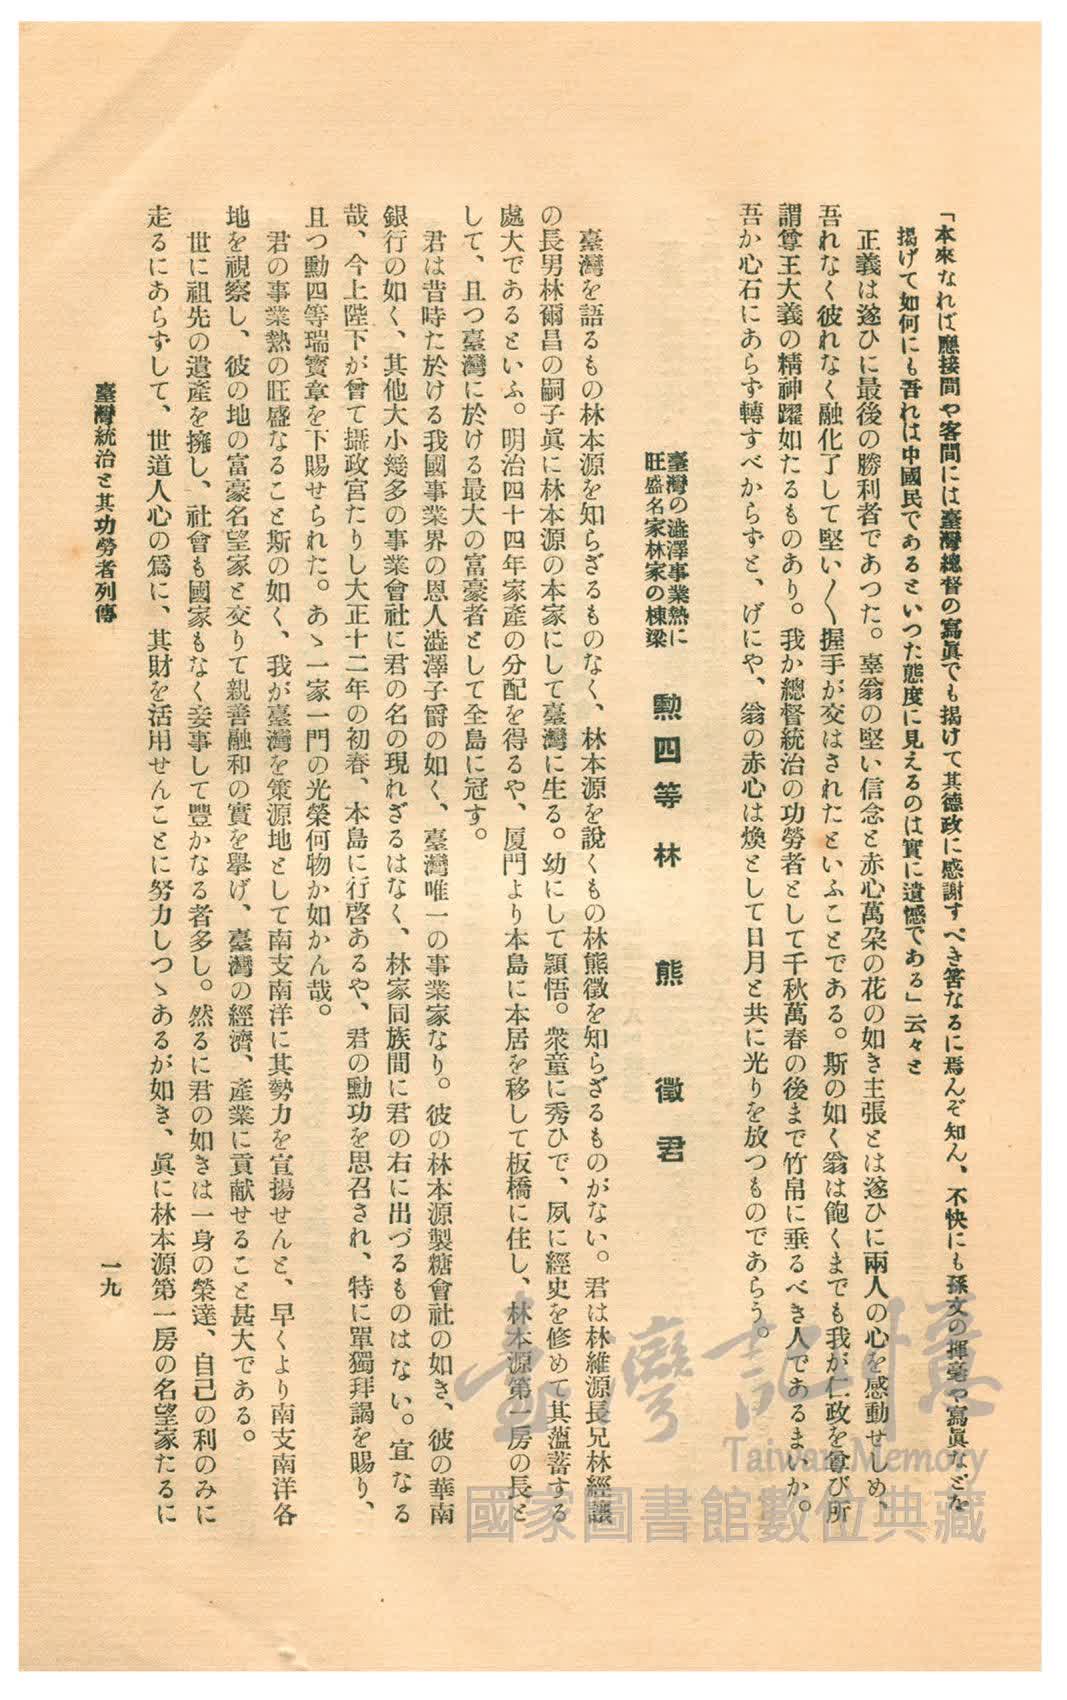 「本來なれば應接間や客間には臺灣總督の寫眞でも揭けて其德政に感謝すべき筈なるに焉んぞ知ん、不快にも孫文の揮毫や寫眞などを
揭げて如何にも吾れは中國民であるといつた態度に見えるのは實に遺憾である」云々と
正義は遂ひに最後の勝利者であつた。辜翁の堅い信念と赤心萬朶の花の如き主張とは遂ひに兩人の心を感動せしめ、
吾れなく彼れなく融化了して堅い〱握手が交はされたといふことである。斯の如く翁は飽くまでも我が仁政を尊び所
謂尊王大義の精神躍如たるものあり。我か總督統治の功勞者として千秋萬春の後まで竹帛に垂るべき人であるまいか。
吾か心石にあらず轉すべからずと、げにや、翁の赤心は煥として日月と共に光りを放つものであらう。
臺灣の澁澤事業熱に
旺盛名家林家の棟梁
勳四等 林熊徵君
臺灣を語るもの林本源を知らざるものなく、林本源を說くもの林熊徵を知らざるものがない。君は林維源長兄林經讓
の長男林爾昌の嗣子眞に林本源の本家にして臺灣に生る。幼にして頴悟。衆童に秀ひで、夙に經史を修めて其薀蓄する
處大であるといふ。明治四十四年家產の分配を得るや、厦門より本島に本居を移して板橋に住し、林本源第一房の長と
して、且つ臺灣に於ける最大の富豪者として全島に冠す。
君は昔時た於ける我國事業界の恩人澁澤子爵の如く、臺灣唯一の事業家なり。彼の林本源製糖會社の如き、彼の華南
銀行の如く、其他大小幾多の事業會社に君の名の現れざるはなく、林家同族間に君の右に出づるものはない。宜なる
哉、今上陛下が曾て攝政宮たりし大正十二年の初春、本島に行啓あるや、君の勳功を思召され、特に單獨拜謁を賜り、
且つ勳四等瑞寶章を下賜せられた。あゝ一家一門の光榮何物か如かん哉。
君の事業熱の旺盛なること斯の如く、我が臺灣を策源地として南支南洋に其勢力を宣揚せんと、早くより南支南洋各
地を視察し、彼の地の富豪名望家と交りて親善融和の實を擧げ、臺灣の經濟、產業に貢献せること甚大である。
世に祖先の遺產を擁し、社會も國家もなく妾事して豐かなる者多し。然るに君の如きは一身の榮達、自己の利のみに
走るにあらずして、世道人心の爲に、其財を活用せんことに努力しつゝあるが如き、眞に林本源第一房の名望家たるに
臺灣統治と其功勞者列傳
一九
臺灣記憶
Taiwan Memory
國家圖書館數位典藏